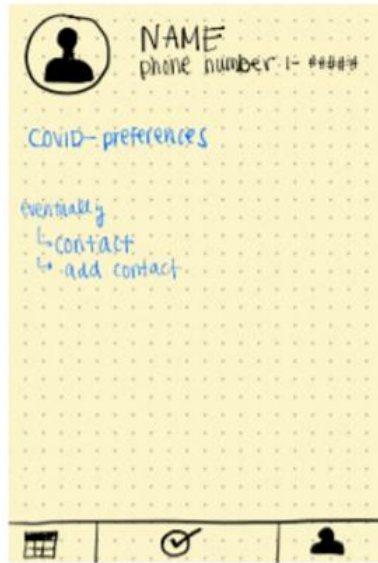 NAME
phone number 1- #####
COVID-preferences
eventually
↳ contact
↳ add contact